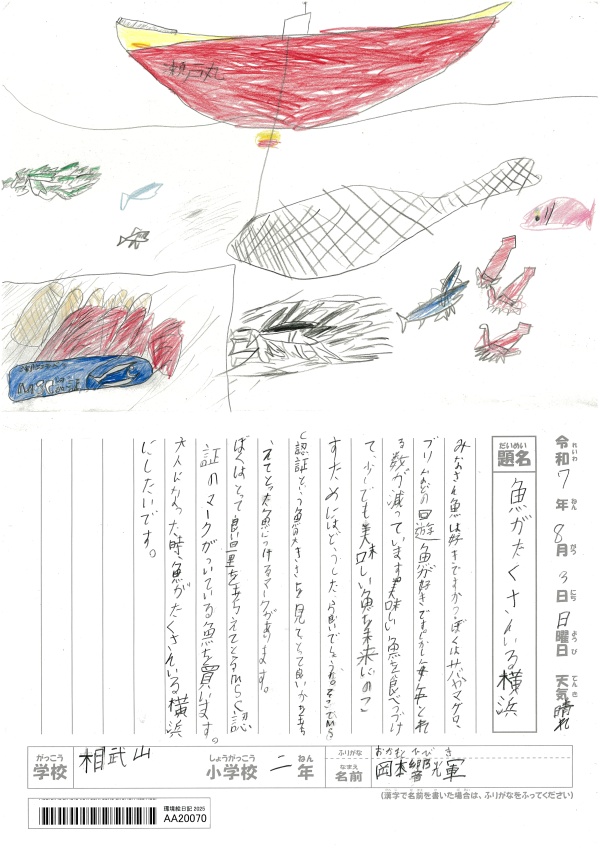 鶴戸丸
MSC認証
令和7年8月3日日曜日 天気 晴れ
れいわ ねん がつ にち ようび てんき
だいめい
題名
魚がたくさんいる横浜
みなさん魚は好きですか?ぼくはサバやマグロ、
ブリなどの回遊魚が好きですどが毎年とれ
る数が減っています美味しい魚を食べつづけ
て、少しでも美味しい魚を未来にのこ
すためにはどうしたら良いでしょうか。そこでMS
C認証という魚の大きさを見てとって良いかを考
えてとった魚につけるマークがあります。
ぼくはとって良い量を考えてとるMSC認
証のマークがついている魚を買います。
大人になった時、魚がたくさんいる横浜
にしたいです。
がっこう しょうがっこう ねん
学校 相武山 小学校 二年
ふりがな おかもと ひびき
なまえ
名前 岡本 響
(漢字で名前を書いた場合は、ふりがなをふってください)
環境絵日記 2025
AA20070